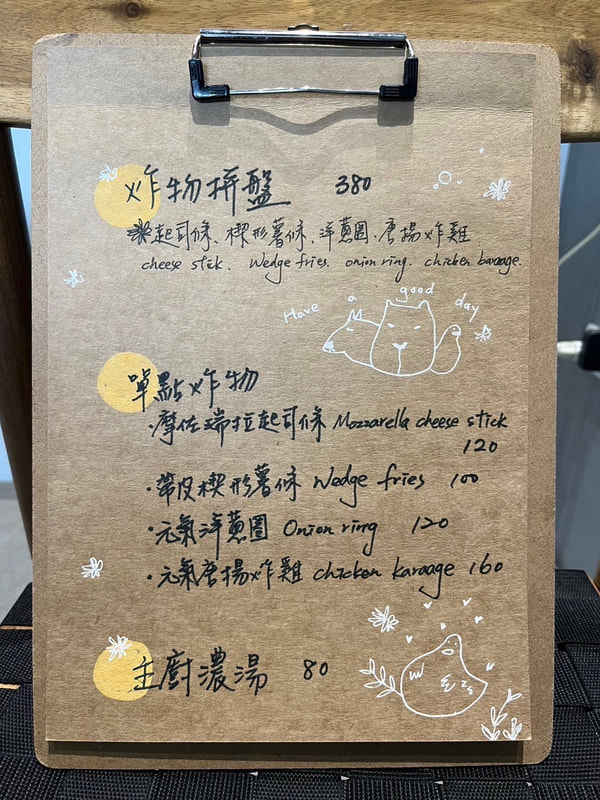 炸物拼盤 380
起司條、楔形薯條、洋蔥圈、唐揚炸雞
cheese stick. Wedge fries. onion ring. chicken baraage.
Have a good day
單點炸物
·摩佐瑞拉起司條 Mozzarella cheese stick
120
·帶皮楔形薯條 Wedge fries 100
·元氣洋蔥圈 Onion ring 120
·元氣唐揚炸雞 chicken karaage 160
主廚濃湯 80